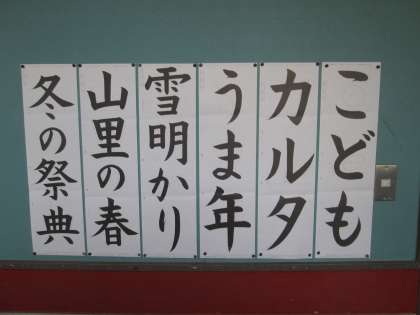 こども
カルタ
うま年
雪明かり
山里の春
冬の祭典